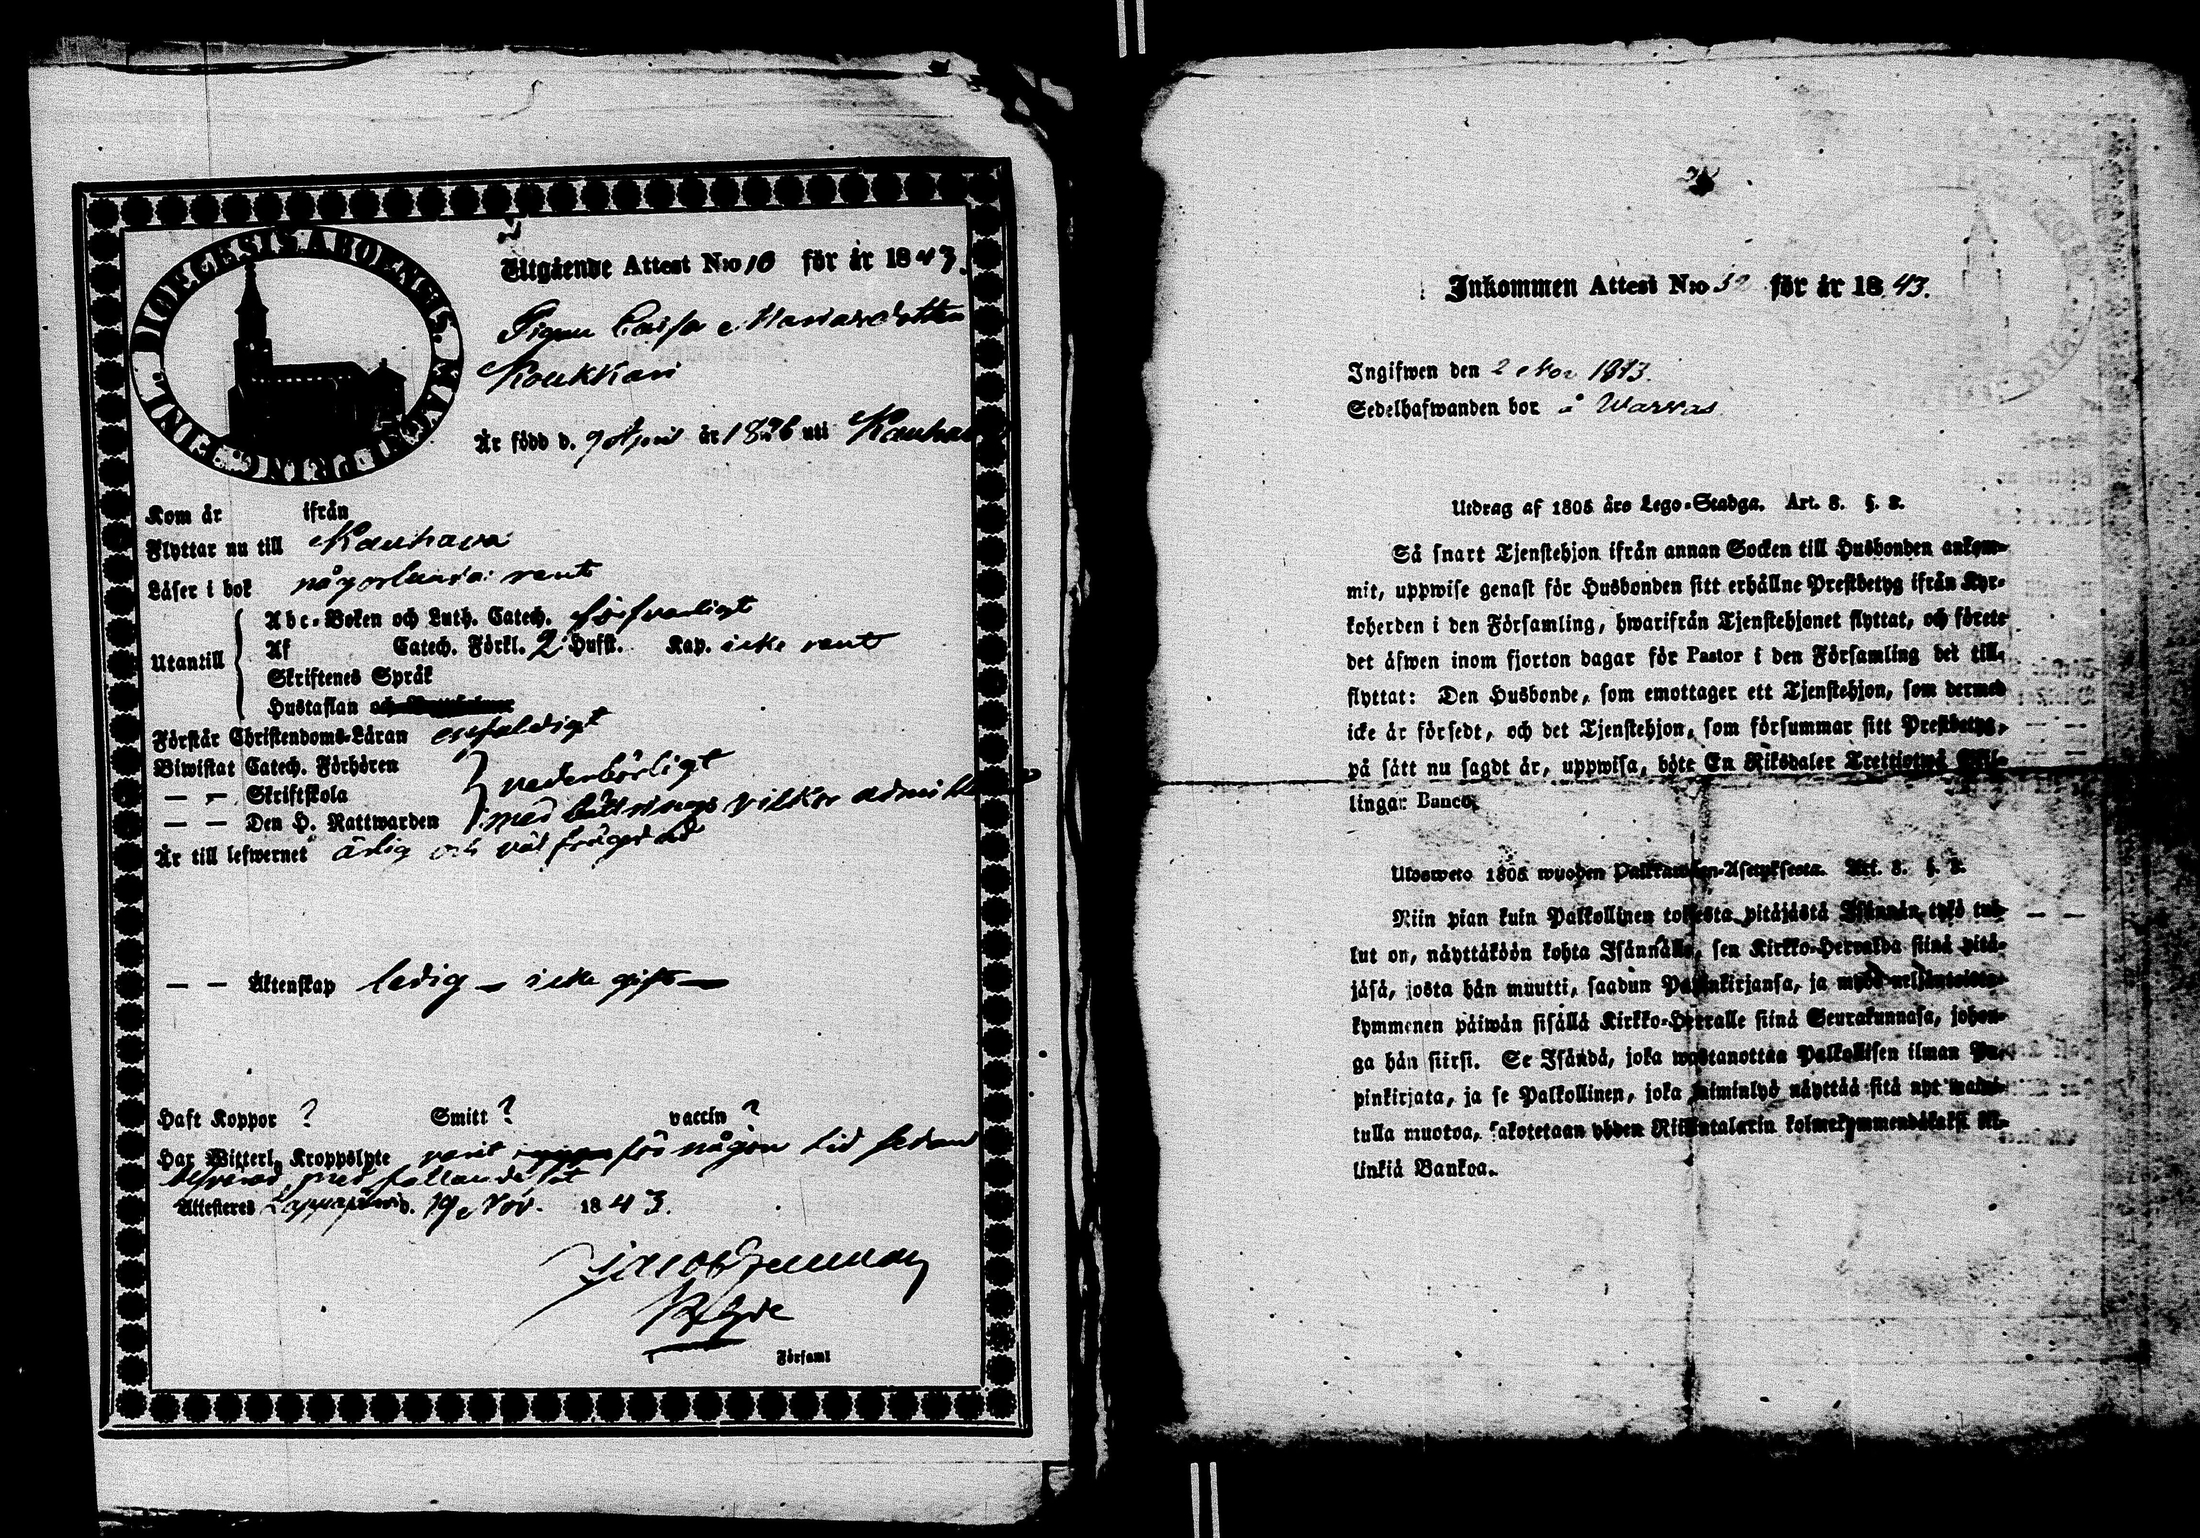 DIOECESIS ABOENSIS. MAGNI PRINC. FINL.
Utgående Attest N:o 10 för år 1843.
Pigan Caisa Mariasdotter
Koukkari
Är född d. 9 April år 1826 uti Kauhava
Kom år ifrån
Flyttar nu till Kauhava
Läser i bok någorlunda rent
Utantill
Abc-Boken och Luth. Catech. försvarligt
Af Catech. Förkl. 2 Hufst. Kap. icke rent
Skriftenes Språk
Hustaflan och
Förstår Christendoms-Läran enfaldigt
Biwistat Catech. Förhören
— — Skriftskola vederbörligt
— — Den H. Nattwarden med bättrings vilkor
Är till lefwernet ärlig och väl frägdad
— — Äktenskap ledig — icke gift —
Haft Koppor ? Smitt ? vaccin ?
Har Witterl. Kroppslyte varit för någon tid sedan
besvärad med fallandesot
Attesteras Lappajärvi d. 19 Nov. 1843.
Församl
Inkommen Attest N:o 32 för år 1843.
Ingifwen den 2 Nov 1843.
Sedelhafwanden bor å Warras
Utdrag af 1805 års Lego-Stadga. Art. 8. §. 2.
Så snart Tjenstehjon ifrån annan Socken till Husbonden ankom-
mit, uppwise genast för Husbonden sitt erhållne Prestbetyg ifrån Kyr-
koherden i den Församling, hwarifrån Tjenstehjonet flyttat, och förete
det äfwen inom fjorton dagar för Pastor i den Församling det till-
flyttat: Den Husbonde, som emottager ett Tjenstehjon, som dermed
icke är försedt, och det Tjenstehjon, som försummar sitt Prestbetyg,
på sätt nu sagdt är, uppwisa, böte En Riksdaler Trettiotwå Skil-
lingar Banco.
Ulosweto 1805 wuoden Palkkawäen-Asetuksesta. Art. 8. §. 2.
Niin pian kuin Palkollinen toisesta pitäjästä Isännän tykö tul-
lut on, näyttäköön kohta Isännälle, sen Kirkko-Herralda siinä pitä-
jäsä, josta hän muutti, saadun Papinkirjansa, ja myös neljäntoista-
kymmenen päiwän sisällä Kirkko-Herralle siinä Seurakunnasa, johon-
ga hän siirsi. Se Isändä, joka wastanottaa Palkollisen ilman Pa-
pinkirjata, ja se Palkollinen, joka laiminlyö näyttää sitä nyt maini-
tulla muotoa, sakotetaan yhden Riksintalarin kolmekymmendäkaksi kil-
linkiä Bankoa.